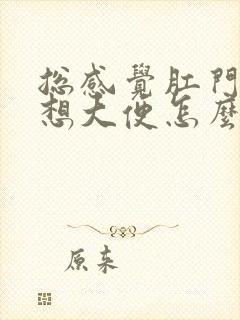 總感覺肛門
想大便怎麼
原來